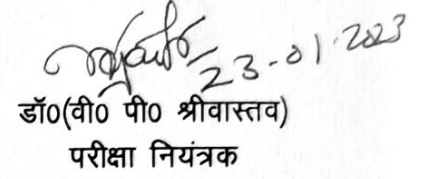 23-01-2023
डॉ0(वी0 पी0 श्रीवास्तव)
परीक्षा नियंत्रक